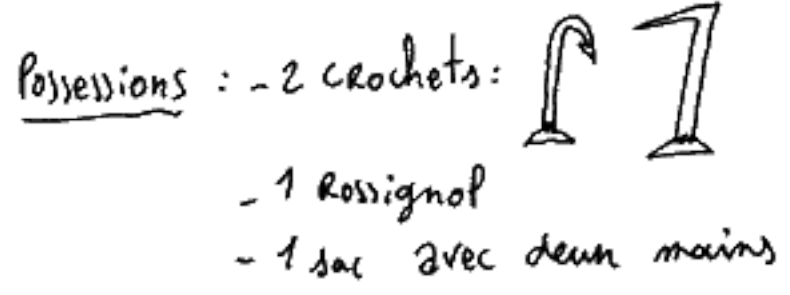 Possessions : - 2 CRochets :
- 1 Rossignol
- 1 sac avec deux mains